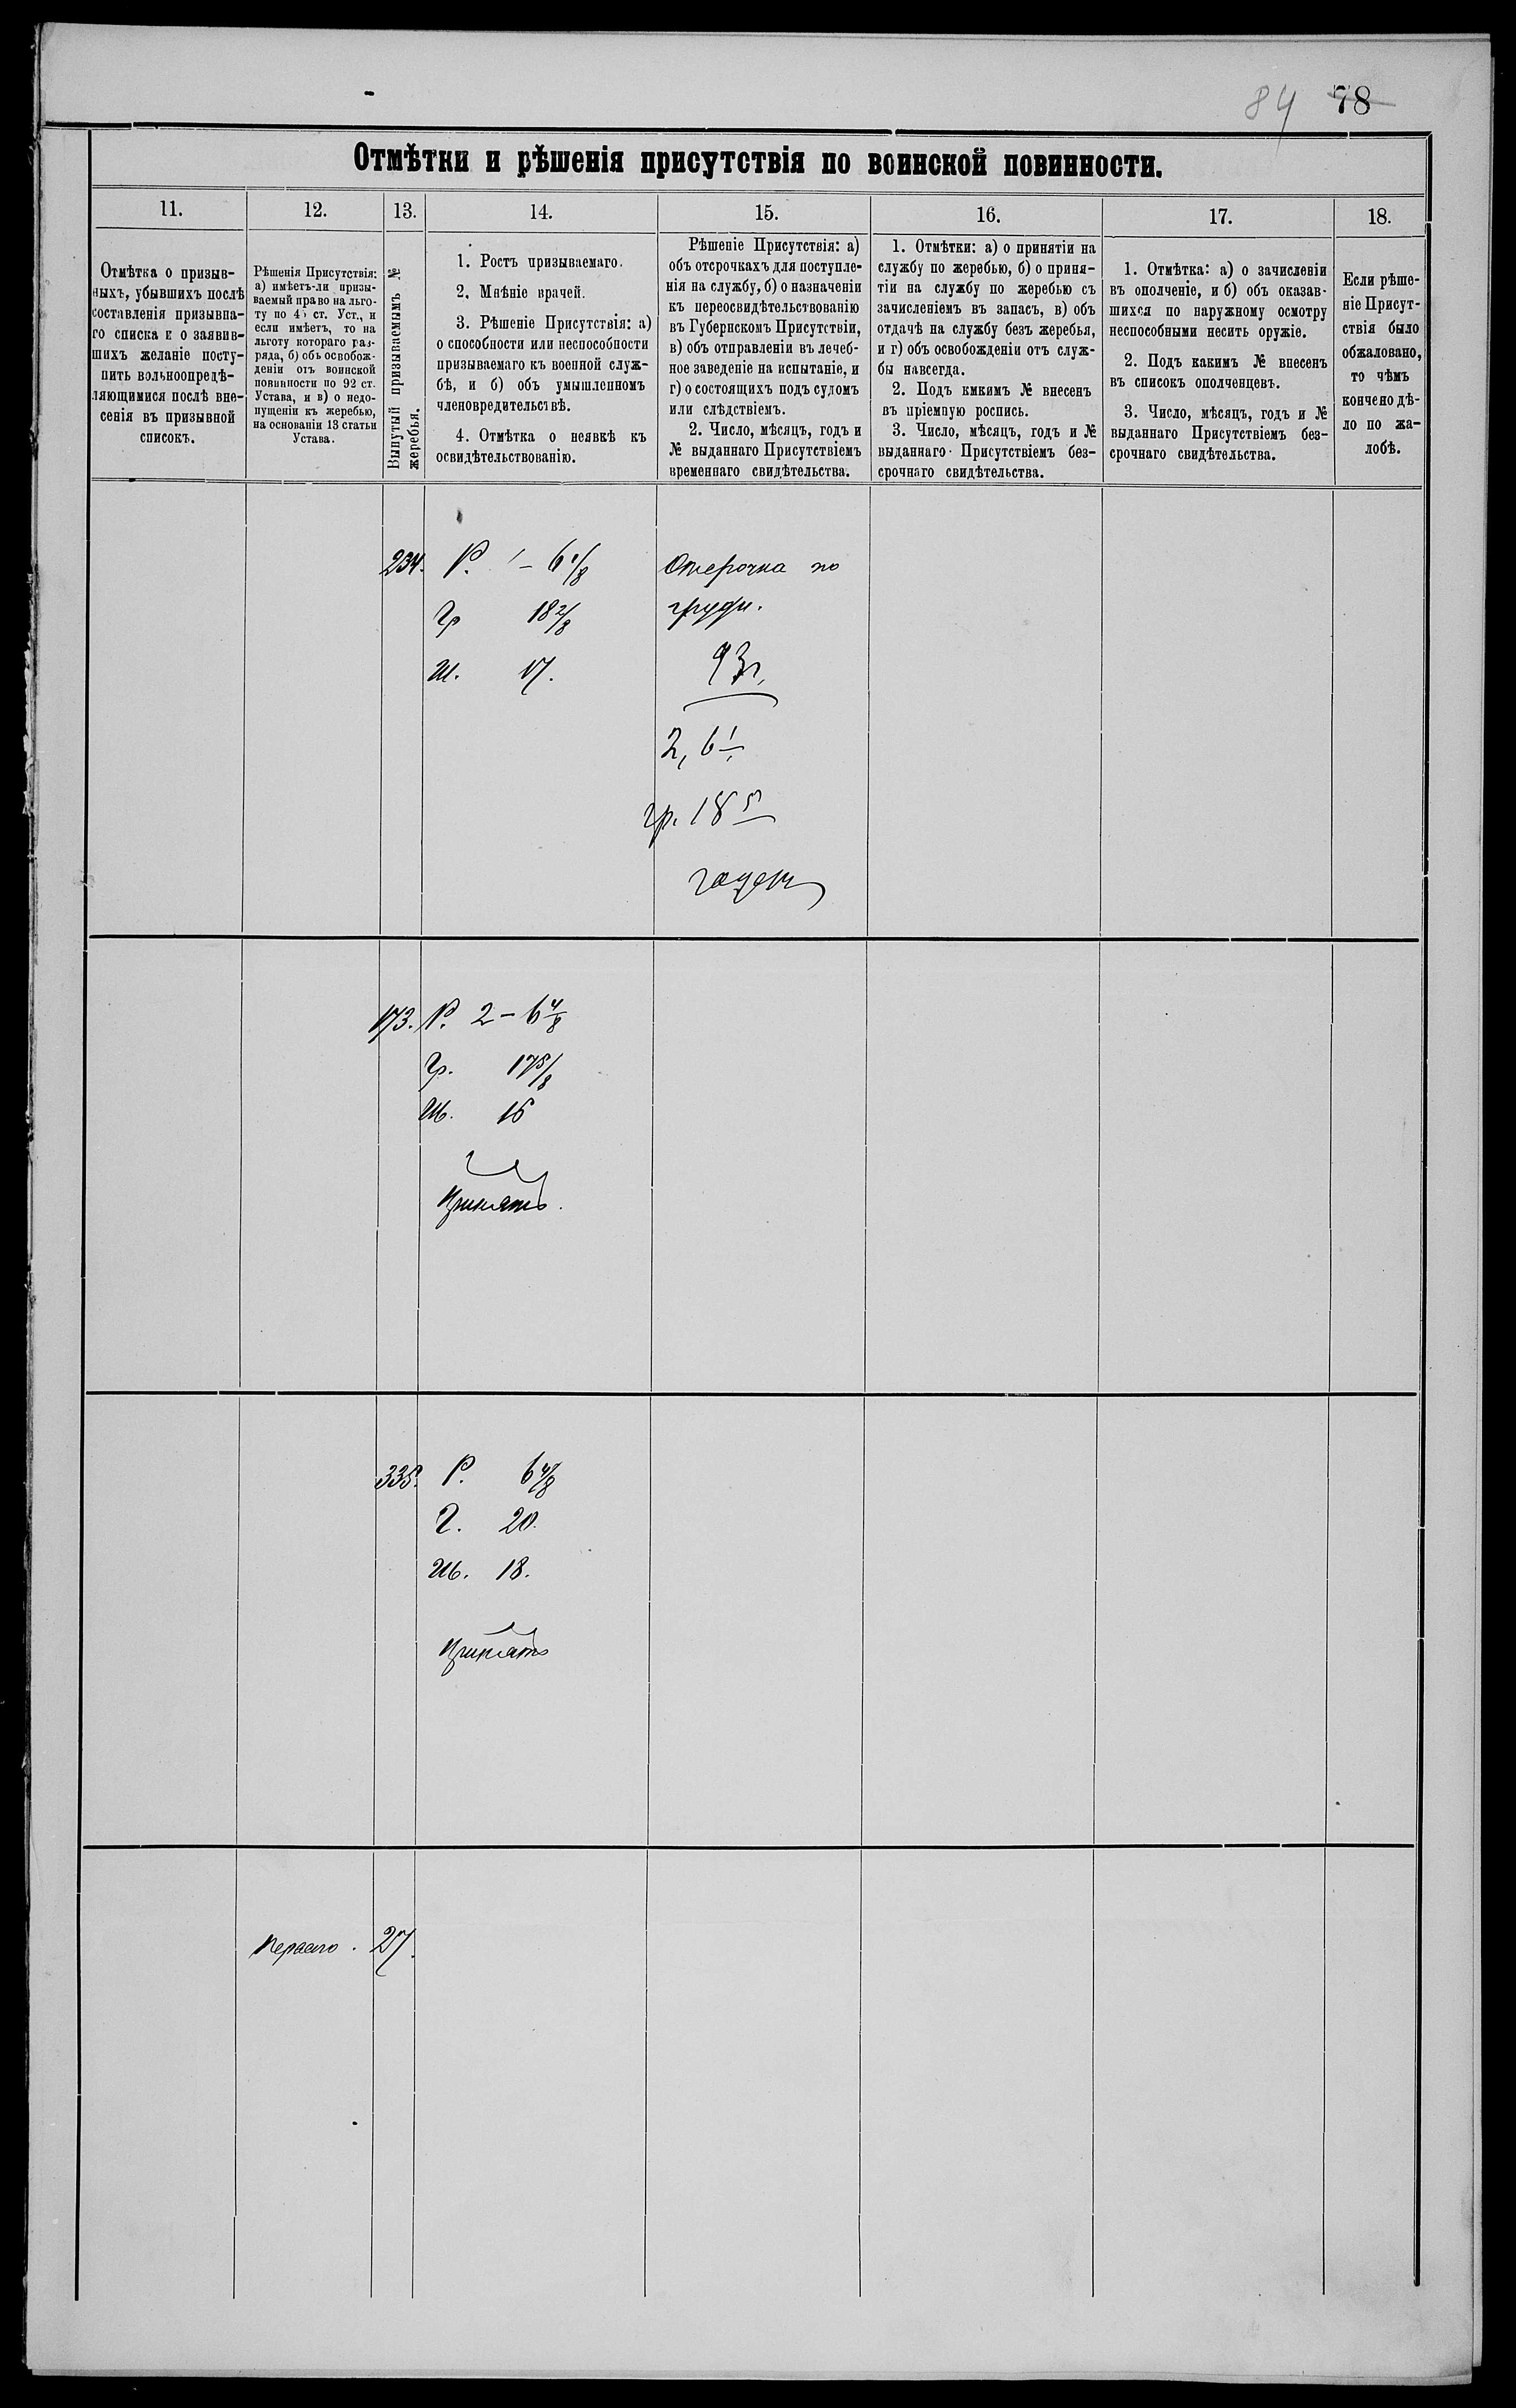 84 78
Отмѣтки и рѣшенія присутствія по воинской повинности.
11.
12.
13.
14.
15.
16.
17.
18.
Отмѣтка о призыв-
ныхъ, убывшихъ послѣ
составленія призывна-
го списка и о заявив-
шихъ желаніе посту-
пить вольноопредѣ-
ляющимися послѣ вне-
сенія въ призывной
списокъ.
Рѣшенія Присутствія:
а) имѣетъ-ли призы-
ваемый право на льго-
ту по 45 ст. Уст., и
если имѣетъ, то на
льготу котораго раз-
ряда, б) объ освобож-
деніи отъ воинской
повинности по 92 ст.
Устава, и в) о недо-
пущеніи къ жеребью,
на основаніи 13 статьи
Устава.
Вынутый призываемымъ №
жеребья.
1. Ростъ призываемаго.
2. Мнѣніе врачей.
3. Рѣшеніе Присутствія: а)
о способности или неспособности
призываемаго къ военной служ-
бѣ, и б) объ умышленномъ
членовредительствѣ.
4. Отмѣтка о неявкѣ къ
освидѣтельствованію.
Рѣшеніе Присутствія: а)
объ отсрочкахъ для поступле-
нія на службу, б) о назначеніи
къ переосвидѣтельствованію
въ Губернскомъ Присутствіи,
в) объ отправленіи въ лечеб-
ное заведеніе на испытаніе, и
г) о состоящихъ подъ судомъ
или слѣдствіемъ.
2. Число, мѣсяцъ, годъ и
№ выданнаго Присутствіемъ
временнаго свидѣтельства.
1. Отмѣтки: а) о принятіи на
службу по жеребью, б) о приня-
тіи на службу по жеребью съ
зачисленіемъ въ запасъ, в) объ
отдачѣ на службу безъ жеребья,
и г) объ освобожденіи отъ служ-
бы навсегда.
2. Подъ кмкимъ № внесенъ
въ пріемную роспись.
3. Число, мѣсяцъ, годъ и №
выданнаго Присутствіемъ без-
срочнаго свидѣтельства.
1. Отмѣтка: а) о зачисленіи
въ ополченіе, и б) объ оказав-
шихся по наружному осмотру
неспособными несить оружіе.
2. Подъ какимъ № внесенъ
въ списокъ ополченцевъ.
3. Число, мѣсяцъ, годъ и №
выданнаго Присутствіемъ без-
срочнаго свидѣтельства.
Если рѣше-
ніе Присут-
ствія было
обжаловано,
то чѣмъ
кончено дѣ-
ло по жа-
лобѣ.
234. Р. 6 1/8 Отсрочка по
Гр 18 2/8 груди.
Ш. 17. 93 г.
2, 6 1
гр. 18 5
годен
173. Р. 2 – 6 4/8
Гр. 17 5/8
Ш. 16
Принятъ.
335. Р. 6 4/8
Г. 20.
Ш. 18.
Принятъ
27.